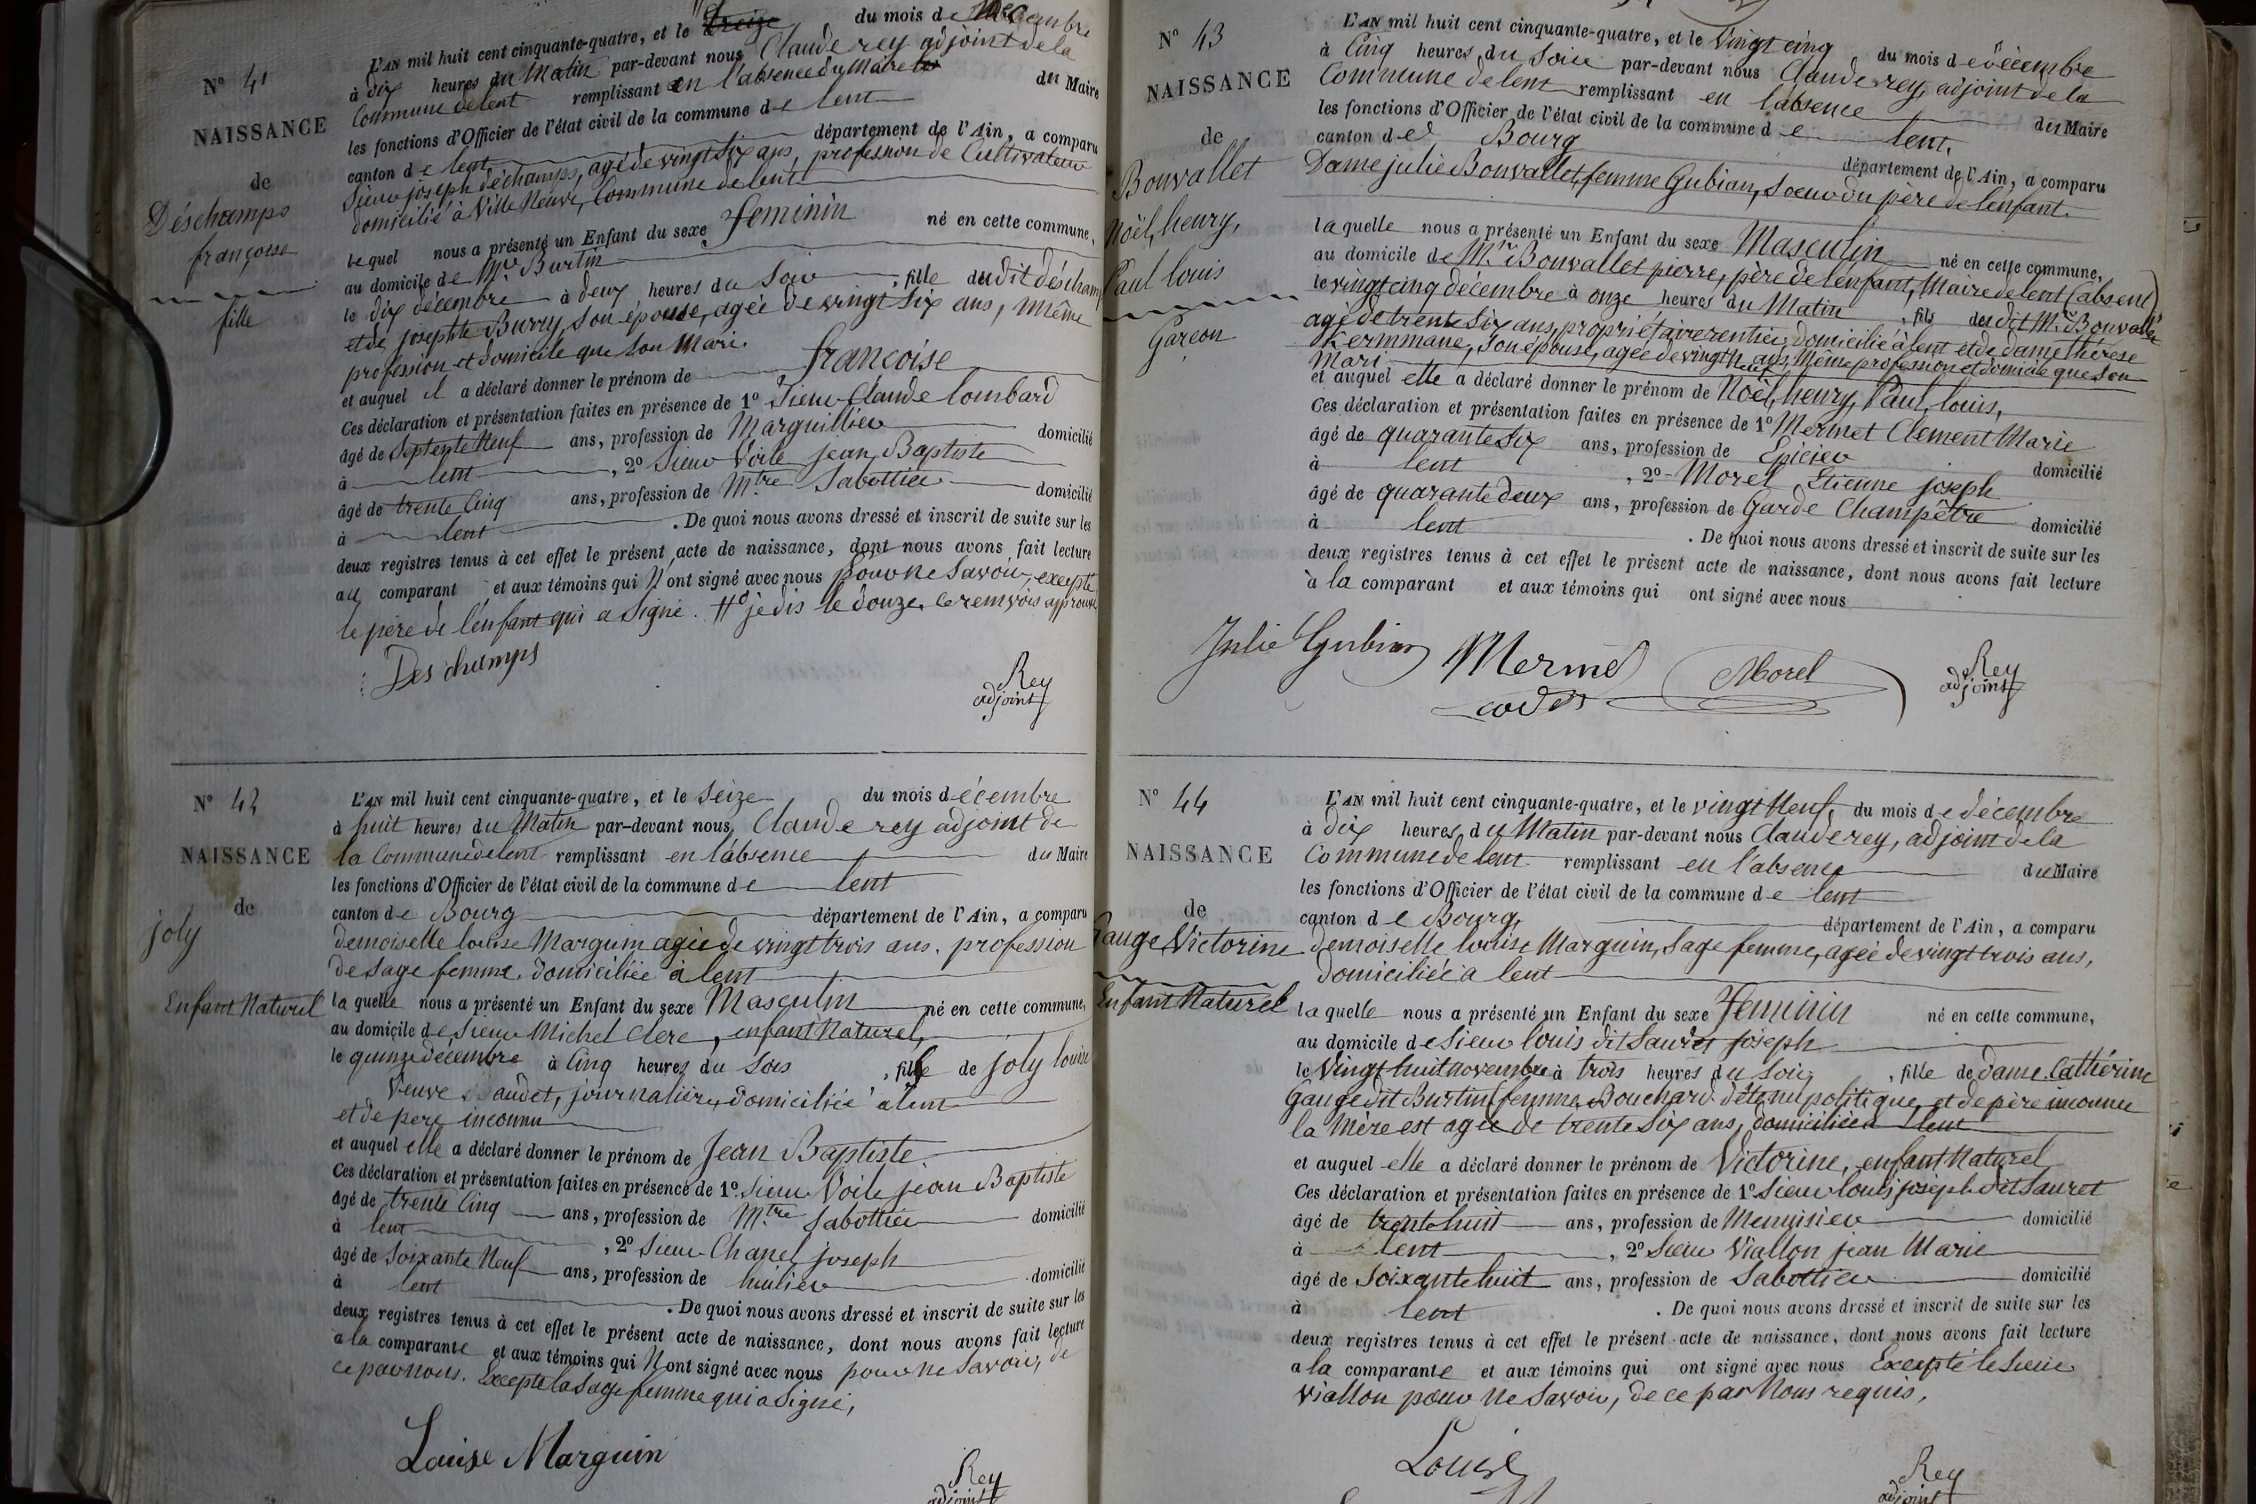 N° 41
NAISSANCE
de
Déschamps
françoise
fille
L'AN mil huit cent cinquante-quatre, et le treize du mois de décembre
à dix heures du Matin par-devant nous Claude rey adjoint de la
Commune de lent remplissant en l'absence du Maire du Maire
les fonctions d'Officier de l'état civil de la commune de lent
canton de lent département de l'Ain, a comparu
Sieur joseph déchamps, agé de vingt six ans, profession de Cultivateur
domicilié à Ville Neuve, Commune de lent
lequel nous a présenté un Enfant du sexe feminin né en cette commune,
au domicile de Mr Burtin
le dix décembre à deux heures du Soir , fille du dit déschamp
et de josephte Burry, son épouse, agée de vingt six ans, même
profession et domicile que son Mari.
et auquel il a déclaré donner le prénom de françoise
Ces déclaration et présentation faites en présence de 1° Sieur Claude lombard
âgé de Septente Neuf ans, profession de Marguillier domicilié
à lent , 2° Sieur Voile jean Baptiste
âgé de trente Cinq ans, profession de Mtre Sabottier domicilié
à lent . De quoi nous avons dressé et inscrit de suite sur les
deux registres tenus à cet effet le présent acte de naissance, dont nous avons fait lecture
au comparant et aux témoins qui N'ont signé avec nous pour ne Savoir, excepté
le père de l'enfant qui a Signé. # je dis le douze, ce renvois approuvé
Des champs
Rey
adjoint
N° 42
NAISSANCE
de
joly
Enfant Naturel
L'AN mil huit cent cinquante-quatre, et le Seize du mois décembre
à huit heures du Matin par-devant nous, Claude rey adjoint de
la Commune de lent remplissant en l'absence du Maire
les fonctions d'Officier de l'état civil de la commune de lent
canton de Bourg département de l'Ain, a comparu
demoiselle louise Marguin agée de vingt trois ans, profession
de Sage femme, domiciliée à lent
la quelle nous a présenté un Enfant du sexe Masculin né en cette commune,
au domicile de Sieur Michel Clerc, enfant Naturel,
le quinze décembre à Cinq heures du Soir , fils de joly louise
Veuve audet, journalière, domiciliée à lent
et de père inconnu
et auquel elle a déclaré donner le prénom de Jean Baptiste
Ces déclaration et présentation faites en présence de 1° Sieur Voile jean Baptiste
âgé de trente Cinq ans, profession de Mtre Sabottier domicilié
à lent , 2° Sieur Chanel joseph
âgé de Soixante Neuf ans, profession de huilier domicilié
à lent . De quoi nous avons dressé et inscrit de suite sur les
deux registres tenus à cet effet le présent acte de naissance, dont nous avons fait lecture
à la comparante et aux témoins qui N'ont signé avec nous pour ne Savoir, de
ce par nous. Excepté la Sage femme qui a Signé,
Louise Marguin
Rey
adjoint
N° 43
NAISSANCE
de
Bonvallet
Noël, henry,
Paul louis
Garçon
L'AN mil huit cent cinquante-quatre, et le Vingt cinq du mois de décembre
à Cinq heures du Soir par-devant nous Claude rey, adjoint de la
Commune de lent remplissant en l'absence du Maire
les fonctions d'Officier de l'état civil de la commune de lent,
canton de Bourg département de l'Ain, a comparu
Dame julie Bonvallet, femme Gubian, Soeur du père de l'enfant.
la quelle nous a présenté un Enfant du sexe Masculin né en cette commune,
au domicile de Mr Bonvallet pierre, père de l'enfant, Maire de lent (absent)
le vingt cinq décembre à onze heures du Matin , fils du dit Mr Bonvallet
agé de trente six ans, propriétaire rentier, domicilié à lent et de dame thérèse
Kermmane, son épouse, agée de vingt Neuf ans, Même profession et domicile que son
Mari
et auquel elle a déclaré donner le prénom de Noël, henry, Paul, louis,
Ces déclaration et présentation faites en présence de 1° Mermet Clement Marie
âgé de quarante six ans, profession de Epicier domicilié
à lent , 2° Morel Etienne joseph
âgé de quarante deux ans, profession de Garde Champêtre domicilié
à lent . De quoi nous avons dressé et inscrit de suite sur les
deux registres tenus à cet effet le présent acte de naissance, dont nous avons fait lecture
à la comparant et aux témoins qui ont signé avec nous
Julie Gubian Mermet Morel
Rey
adjoint
N° 44
NAISSANCE
de
Gauge Victorine
Enfant Naturel
L'AN mil huit cent cinquante-quatre, et le vingt Neuf, du mois de décembre
à dix heures du Matin par-devant nous Claude rey, adjoint de la
Commune de lent remplissant en l'absence du Maire
les fonctions d'Officier de l'état civil de la commune de lent
canton de Bourg, département de l'Ain, a comparu
demoiselle louise Marguin, Sage femme, agée de vingt trois ans,
domiciliée à lent
la quelle nous a présenté un Enfant du sexe feminin né en cette commune,
au domicile de Sieur louis dit Sauret joseph
le Vingt huit novembre à trois heures du Soir , fille de dame Cathérine
Gauge dit Burtin, femme Bouchard détenu politique, et de père inconnu
la Mère est agée de trente Six ans, domiciliée à lent
et auquel elle a déclaré donner le prénom de Victorine, enfant Naturel
Ces déclaration et présentation faites en présence de 1° Sieur louis joseph dit Sauret
âgé de trente huit ans, profession de Menuisier domicilié
à lent , 2° Sieur Viallon jean Marie
âgé de Soixante huit ans, profession de Sabottier domicilié
à lent . De quoi nous avons dressé et inscrit de suite sur les
deux registres tenus à cet effet le présent acte de naissance, dont nous avons fait lecture
a la comparante et aux témoins qui ont signé avec nous Excepté le Sieur
Viallon pour Ne Savoir, de ce par Nous requis,
Louise
Rey
adjoint